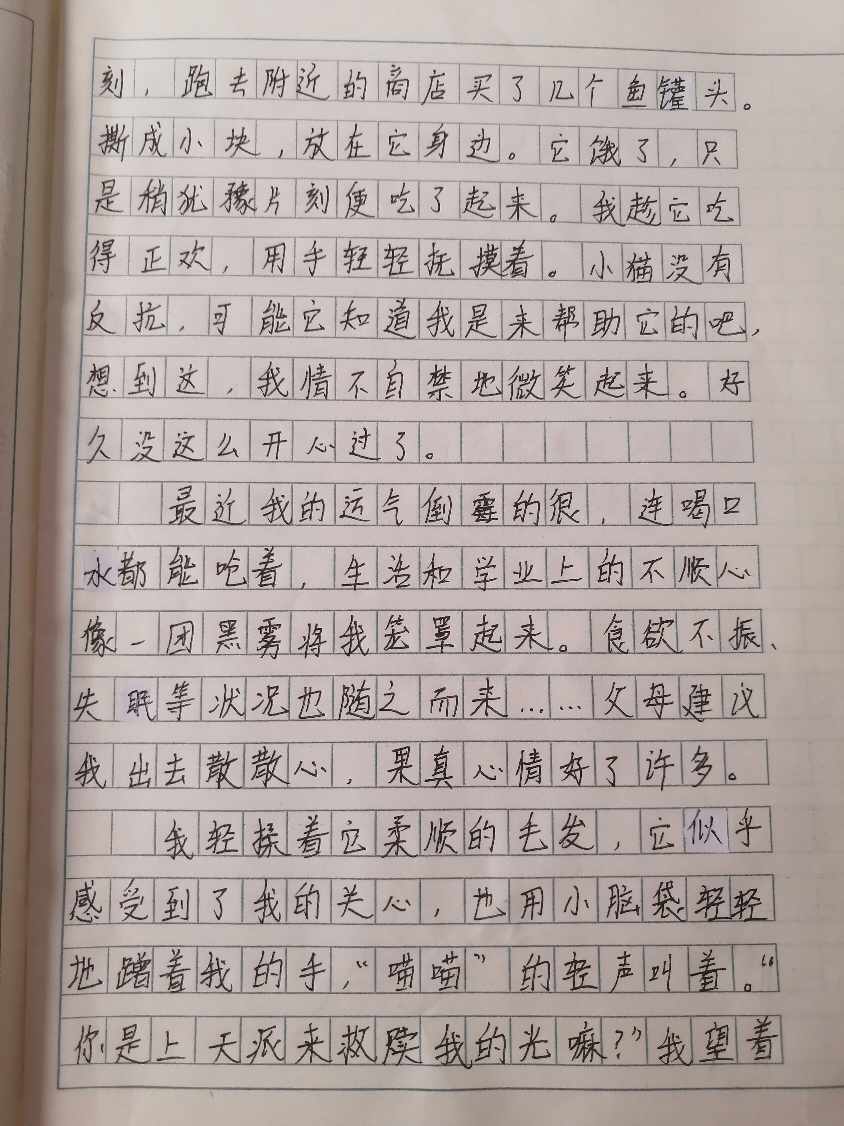 刻，跑去附近的商店买了几个鱼罐头。
撕成小块，放在它身边。它饿了，只
是稍犹豫片刻便吃了起来。我趁它吃
得正欢，用手轻轻抚摸着。小猫没有
反抗，可能它知道我是来帮助它的吧，
想到这，我情不自禁地微笑起来。好
久没这么开心过了。
最近我的运气倒霉的很，连喝口
水都能呛着，生活和学业上的不顺心
像一团黑雾将我笼罩起来。食欲不振、
失眠等状况也随之而来……父母建议
我出去散散心，果真心情好了许多。
我轻揉着它柔顺的毛发，它似乎
感受到了我的关心，也用小脑袋轻轻
地蹭着我的手，“喵喵”的轻声叫着。“
你是上天派来救赎我的光嘛？”我望着